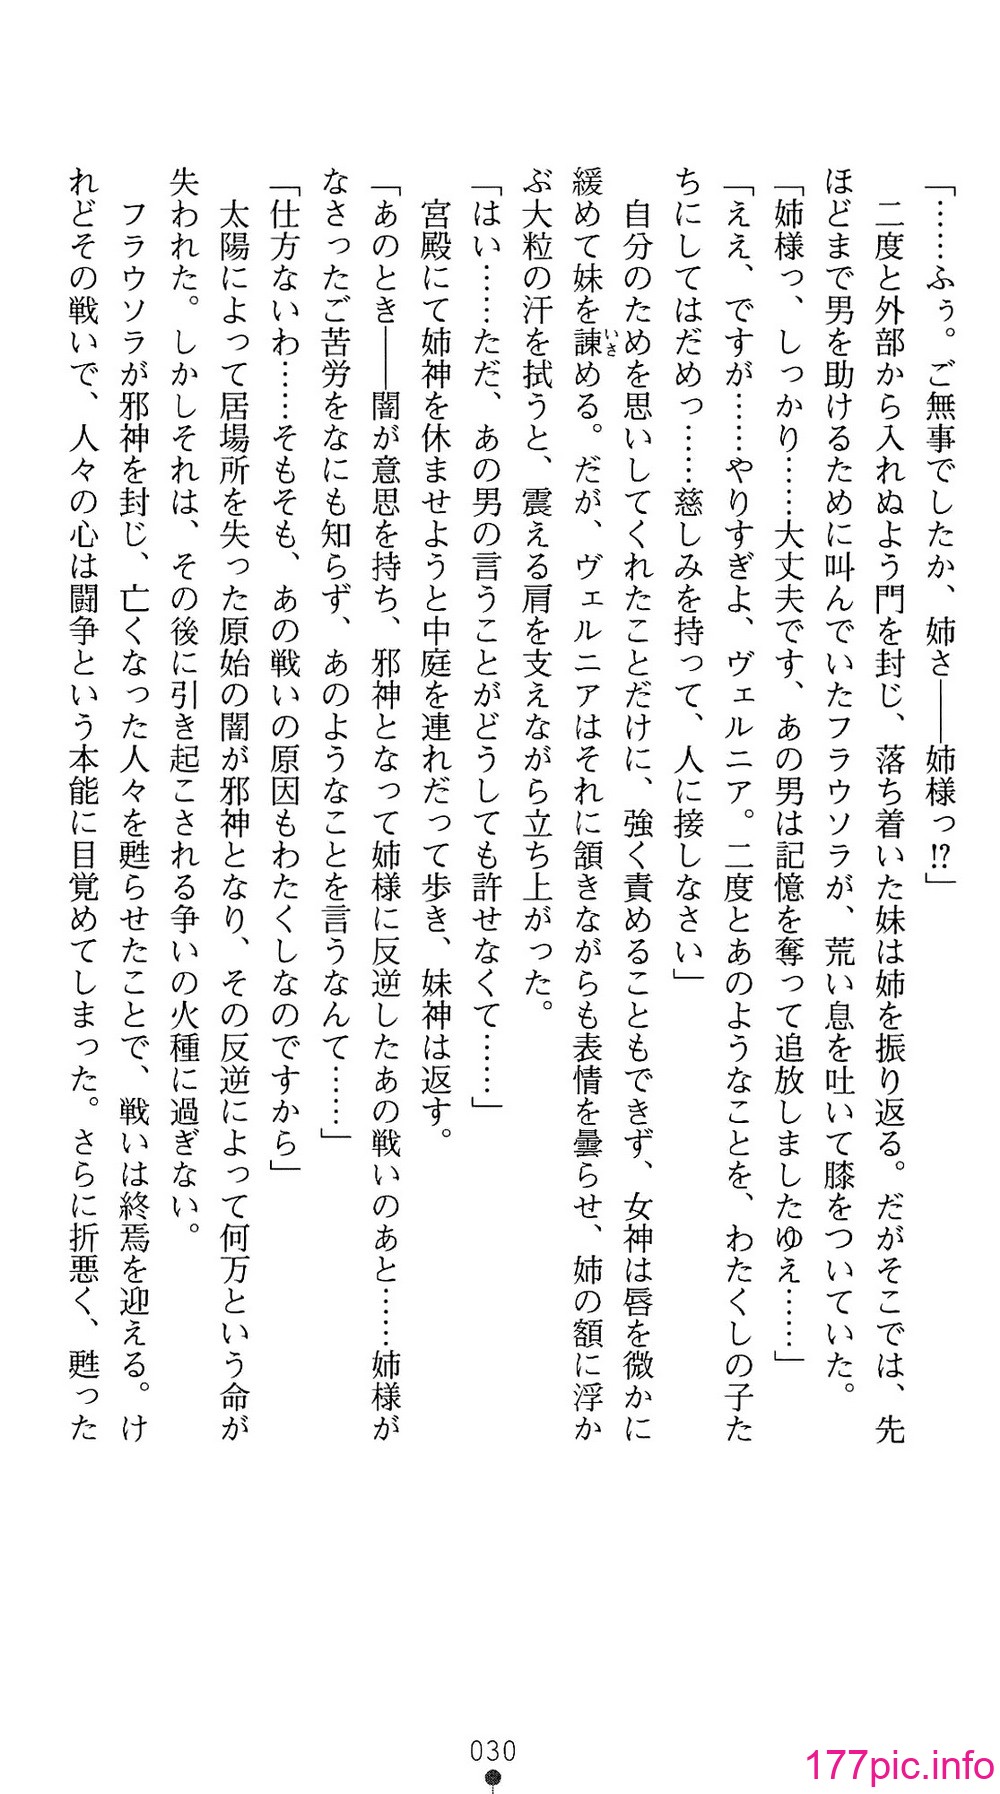 「……ふぅ。ご無事でしたか、姉さ――姉様っ!?」
二度と外部から入れぬよう門を封じ、落ち着いた妹は姉を振り返る。だがそこでは、先
ほどまで男を助けるために叫んでいたフラウソラが、荒い息を吐いて膝をついていた。
「姉様っ、しっかり……大丈夫です、あの男は記憶を奪って追放しましたゆえ……」
「ええ、ですが……やりすぎよ、ヴェルニア。二度とあのようなことを、わたくしの子た
ちにしてはだめっ……慈しみを持って、人に接しなさい」
自分のためを思いしてくれたことだけに、強く責めることもできず、女神は唇を微かに
緩めて妹を諌いさめる。だが、ヴェルニアはそれに頷きながらも表情を曇らせ、姉の額に浮か
ぶ大粒の汗を拭うと、震える肩を支えながら立ち上がった。
「はい……ただ、あの男の言うことがどうしても許せなくて……」
宮殿にて姉神を休ませようと中庭を連れだって歩き、妹神は返す。
「あのとき――闇が意思を持ち、邪神となって姉様に反逆したあの戦いのあと……姉様が
なさったご苦労をなにも知らず、あのようなことを言うなんて……」
「仕方ないわ……そもそも、あの戦いの原因もわたくしなのですから」
太陽によって居場所を失った原始の闇が邪神となり、その反逆によって何万という命が
失われた。しかしそれは、その後に引き起こされる争いの火種に過ぎない。
フラウソラが邪神を封じ、亡くなった人々を甦らせたことで、戦いは終焉を迎える。け
れどその戦いで、人々の心は闘争という本能に目覚めてしまった。さらに折悪く、甦った
030
177pic.info